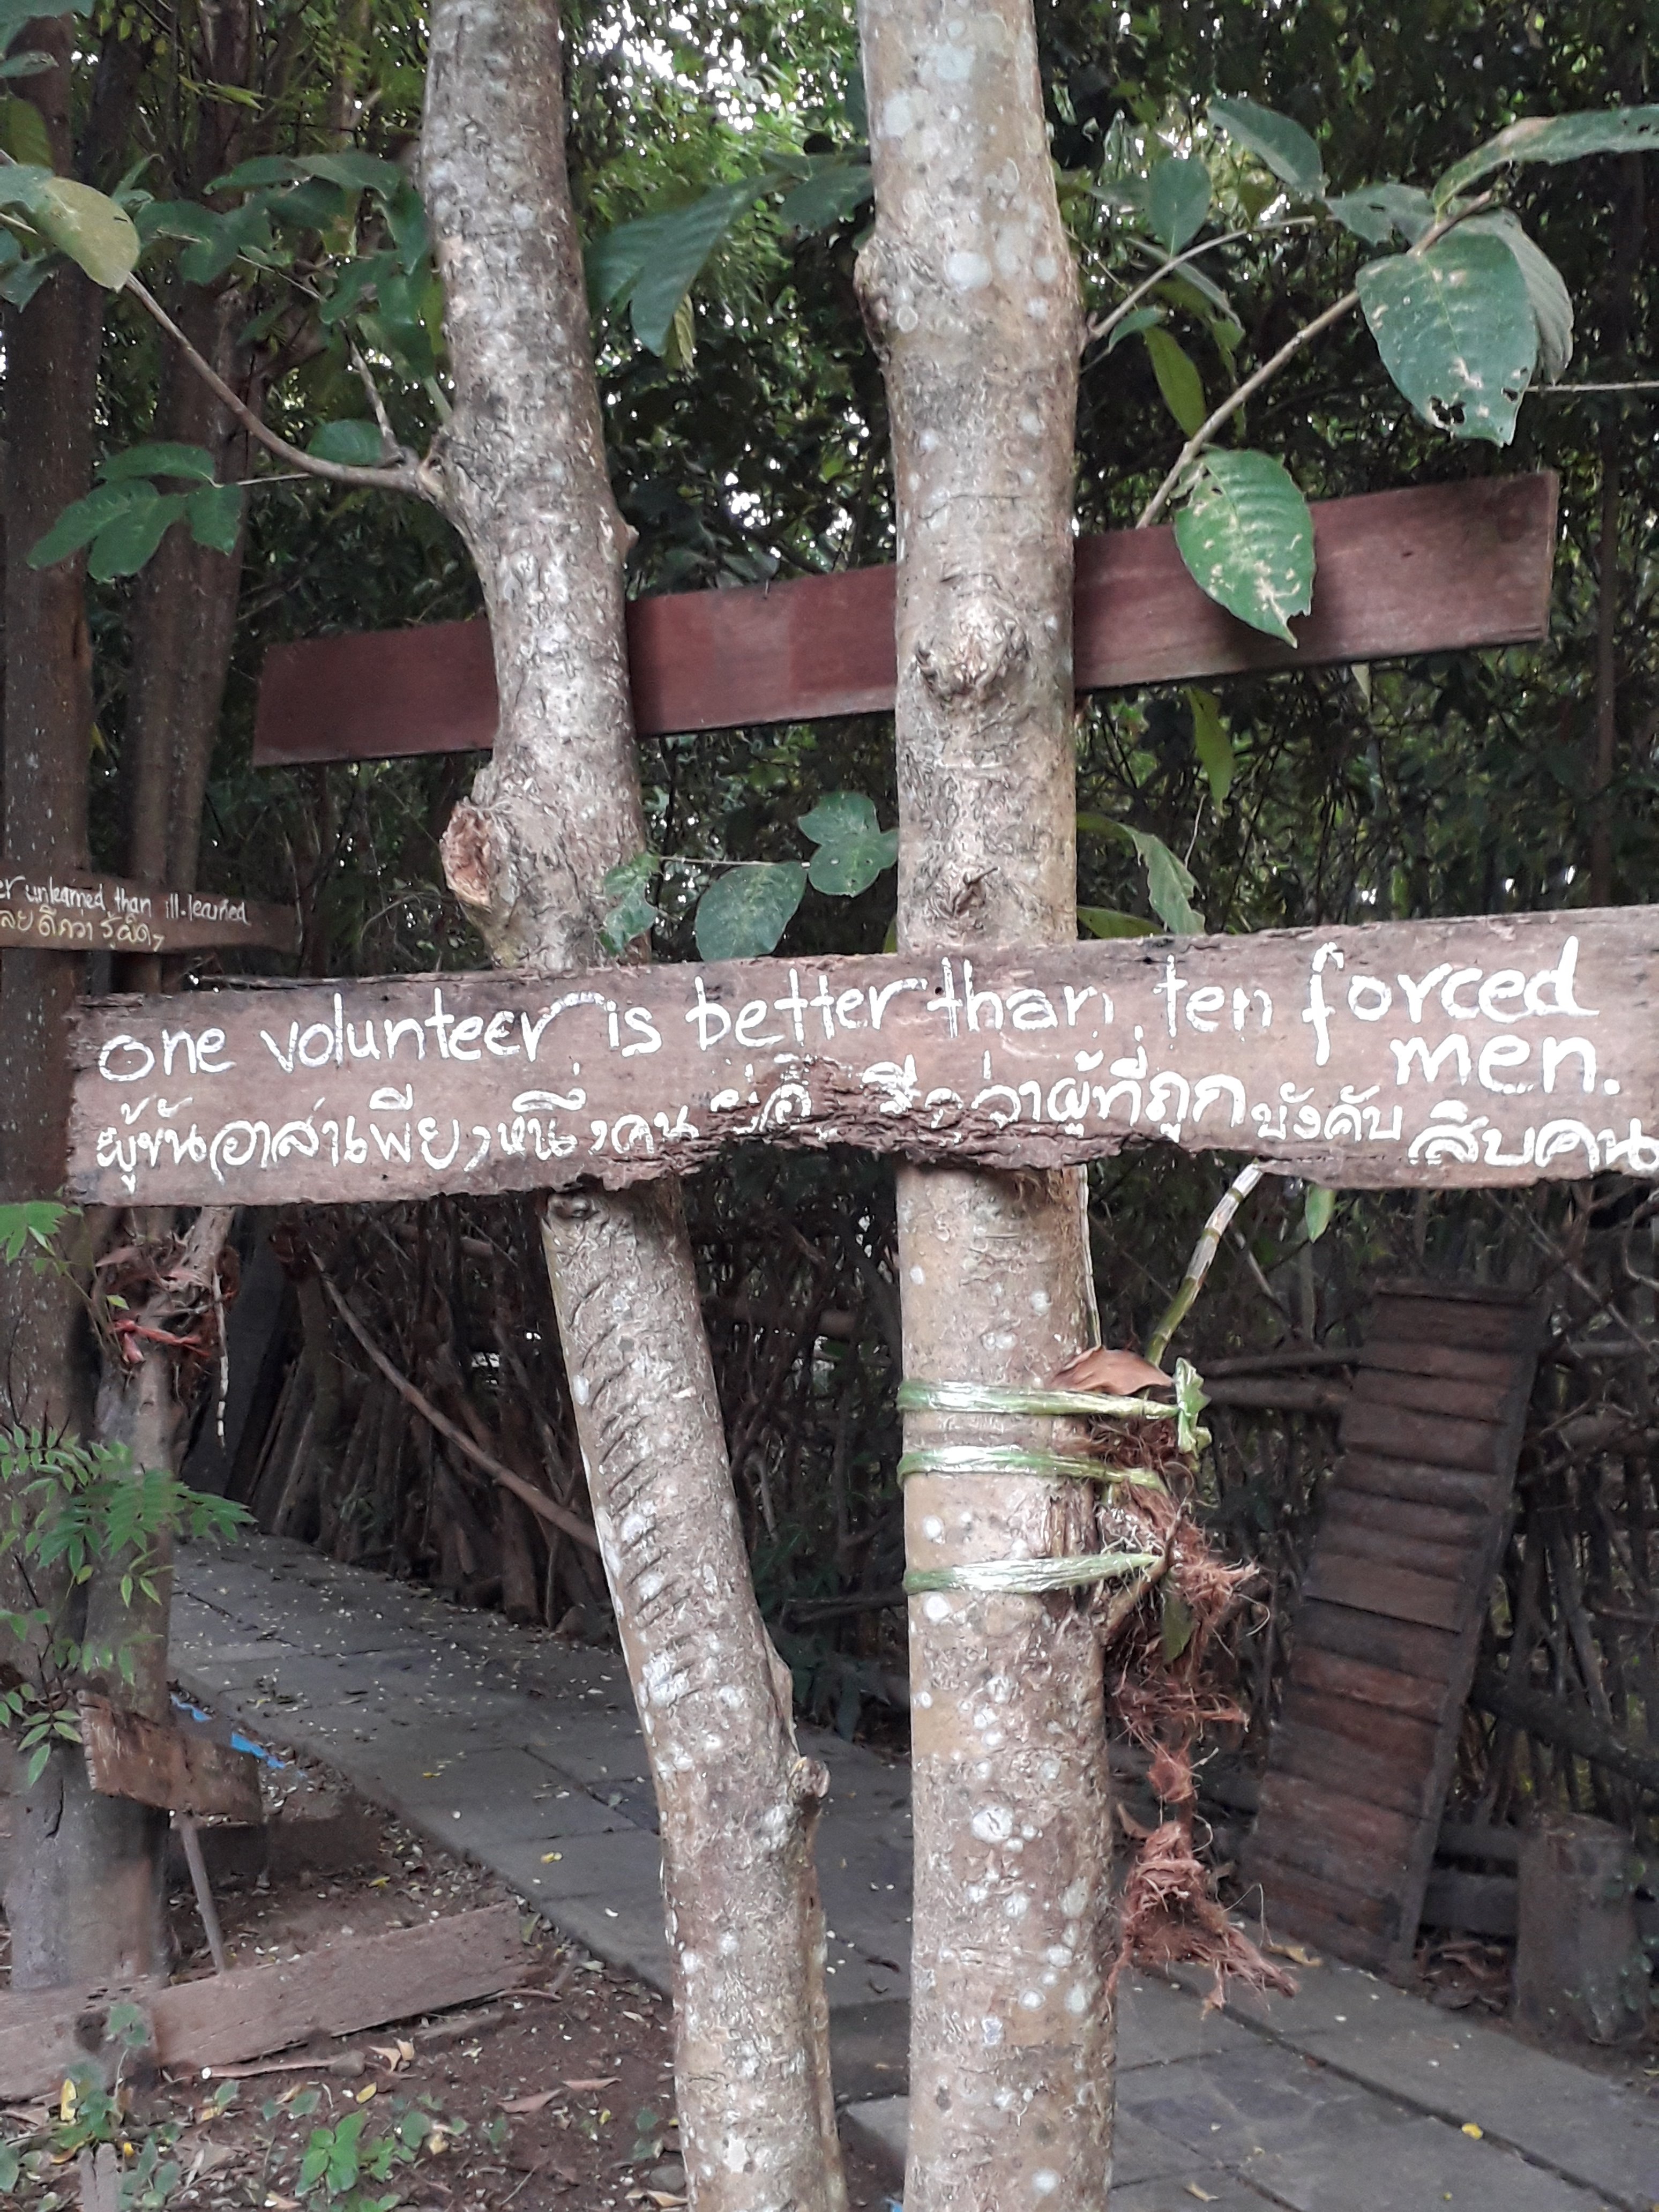 unlearned than ill-learned
ดีกว่า รู้ผิดๆ
one volunteer is better than ten forced
men.
ผู้ขันอาสาเพียงหนึ่งคน ดีกว่าผู้ที่ถูกบังคับ สิบคน